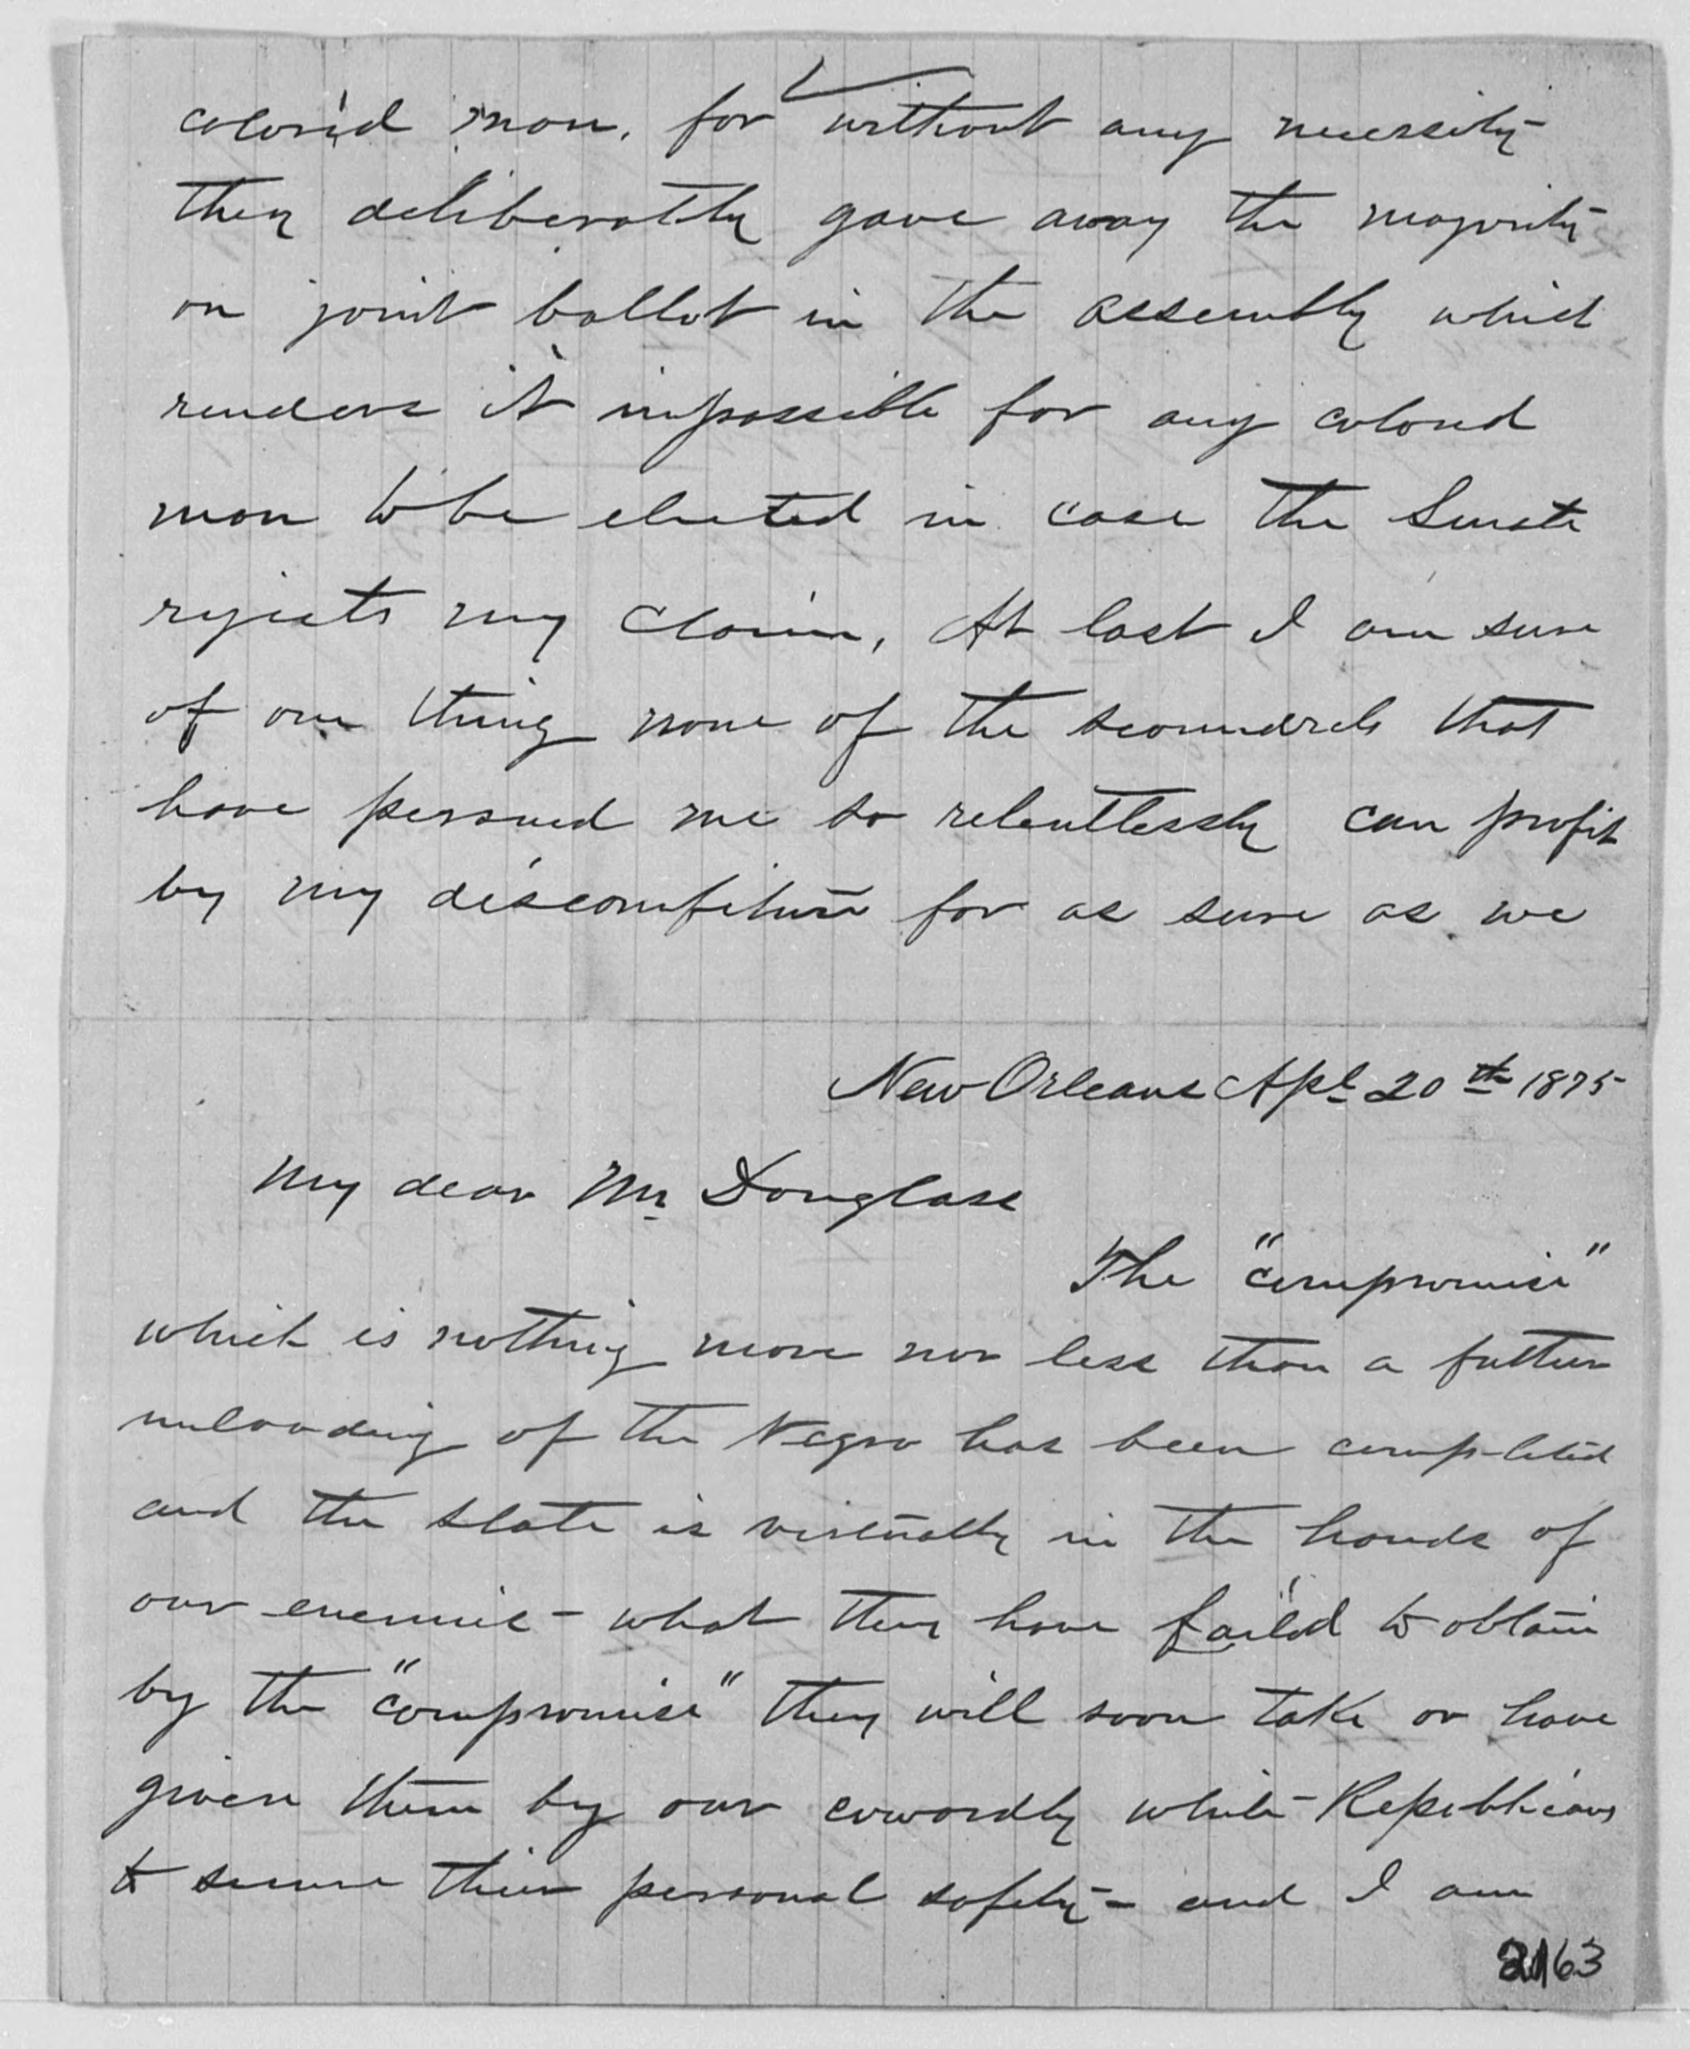 colored man. for without any necessity
they deliberatly gave away the majority
on joint ballot in the assembly which
renders it impossible for any colored
man to be elected in case the Senate
rejects my claim. At last I am sure
of one thing none of the scoundrels that
have persued me so relentlessly can profit
by my discomfiture for as sure as we
New Orleans Apl 20th 1875
My dear Mr Douglass
The "compromise"
which is nothing more nor less than a further
unloading of the Negro has been completed
and the State is virtually in the hands of
our enemies - what they have failed to obtain
by the "compromise" they will soon take or have
given them by our cowardly white Republicans
to secure their personal safety - and I am
2163